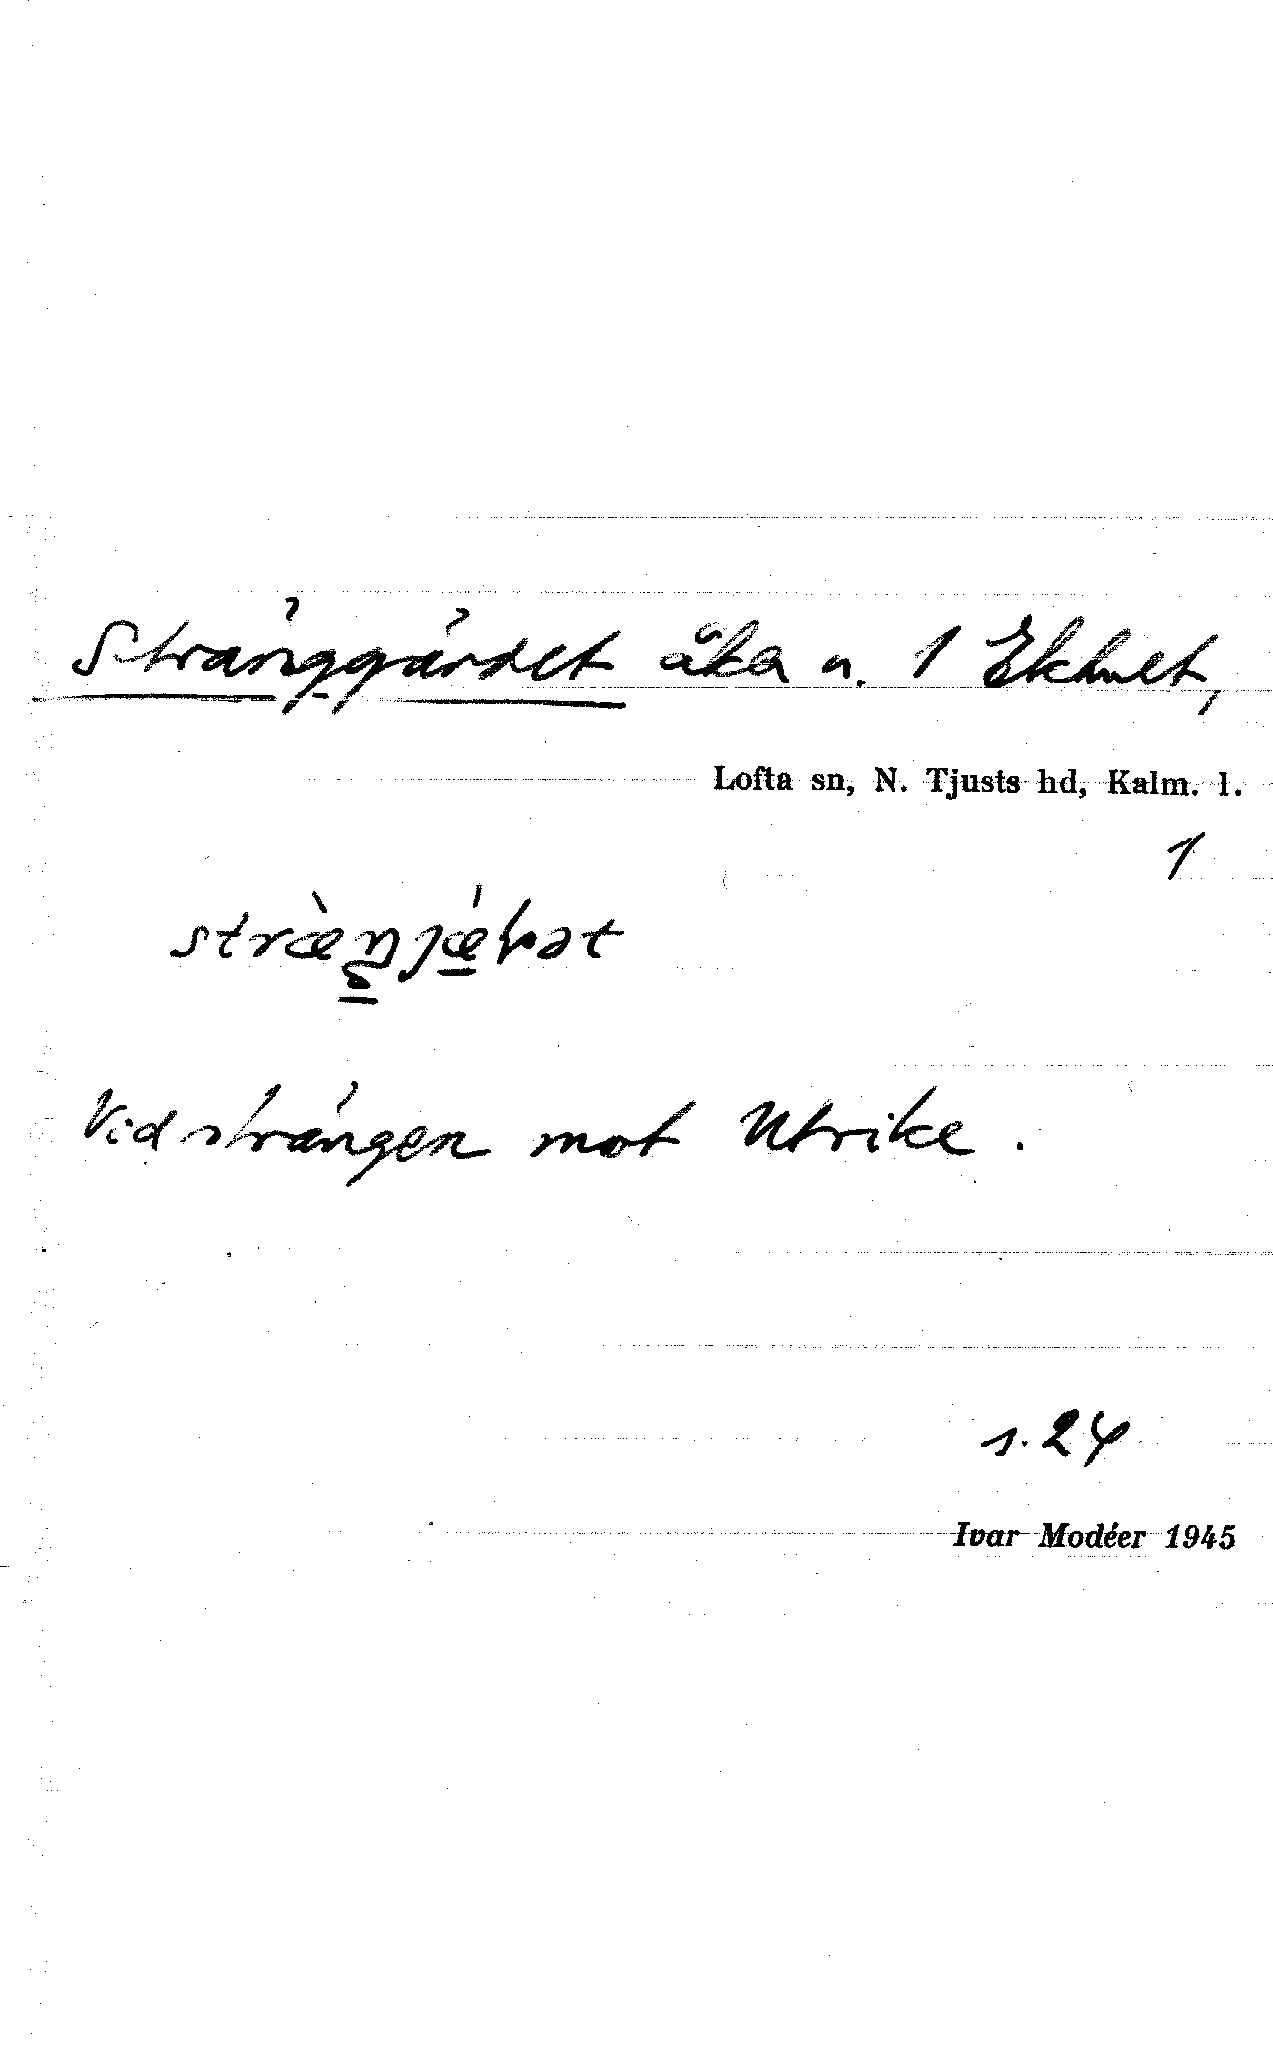 Stränggärdet åka n. 1 Ekhult,
Lofta sn, N. Tjusts hd, Kalm. l.
1
Vid strängen mot Utrike.
s. 24
Ivar Modéer 1945